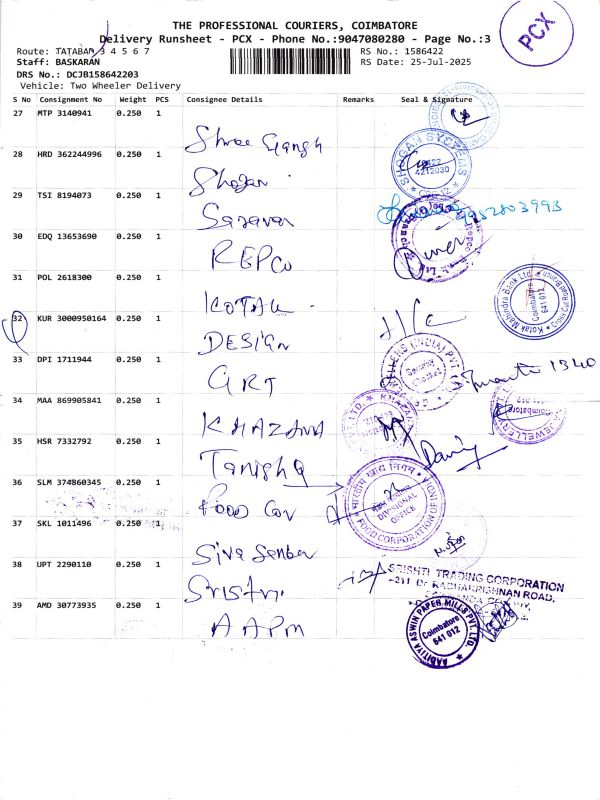 THE PROFESSIONAL COURIERS, COIMBATORE
Delivery Runsheet - PCX - Phone No.:9047080280 - Page No.:3
PCX
Route: TATABAD 3 4 5 6 7
RS No.: 1586422
Staff: BASKARAN
RS Date: 25-Jul-2025
DRS No.: DCJB158642203
Vehicle: Two Wheeler Delivery
S No Consignment No Weight PCS Consignee Details Remarks Seal & Signature
27 MTP 3140941 0.250 1 Shree Gangh
28 HRD 362244996 0.250 1 Shogan SHOGAN SYSTEMS 4212030
29 TSI 8194073 0.250 1 Saravan 9952803993
30 EDQ 13653690 0.250 1 REPCO
31 POL 2618300 0.250 1 KOTAK Kotak Mahindra Bank Ltd. Coimbatore 641 012
32 KUR 3000950164 0.250 1 DESIGN
33 DPI 1711944 0.250 1 GRT Security 1340
34 MAA 869905841 0.250 1 KHAZANA
35 HSR 7332792 0.250 1 Tanishq
36 SLM 374860345 0.250 1 Food Cor भारतीय खाद्य निगम DIVISIONAL OFFICE FOOD CORPORATION OF INDIA
37 SKL 1011496 0.250 1 Siva Sankar
38 UPT 2290110 0.250 1 Sristi SRISHTI TRADING CORPORATION
-211 Dr RADHAKRISHNAN ROAD,
39 AMD 30773935 0.250 1 AAPM AADITIYA ASWIN PAPER MILLS PVT. LTD. Coimbatore 641 012